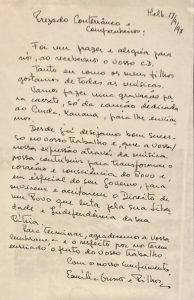 Melb. 17/4/98
Prezado Conterrâneo e
Companheiro:
Foi um prazer e alegria para
nós, ao recebermos o vosso CD.
Tanto eu como os meus filhos
gostamos de todas as músicas.
Vamos fazer uma gravação para
na cassete, só da canção dedicada
ao Comdt. Xanana, para lhe enviar
mos.
Desde já desejamos bom suces-
so no vosso trabalho e que a vossa/
nossa expressão através da música
possa contribuir para transformar o
coração e consciência do Povo e
em especial do seu Governo, para
ouvirem e aceitarem o Direito de
um Povo que luta pela sua liber
dade e independência da sua
Pátria.
Para terminar, agradecemos a vossa
lembrança e o respeito por nos terem
enviado o fruto do vosso trabalho
Com o nosso cumprimento
e Filhos